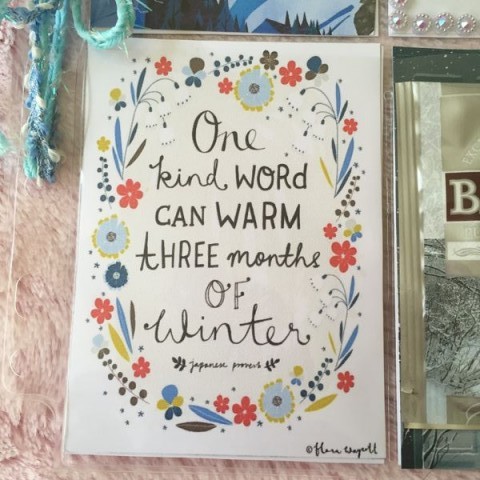 One
kind WORD
CAN WARM
tHREE months
OF
Winter
japanese proverb
B